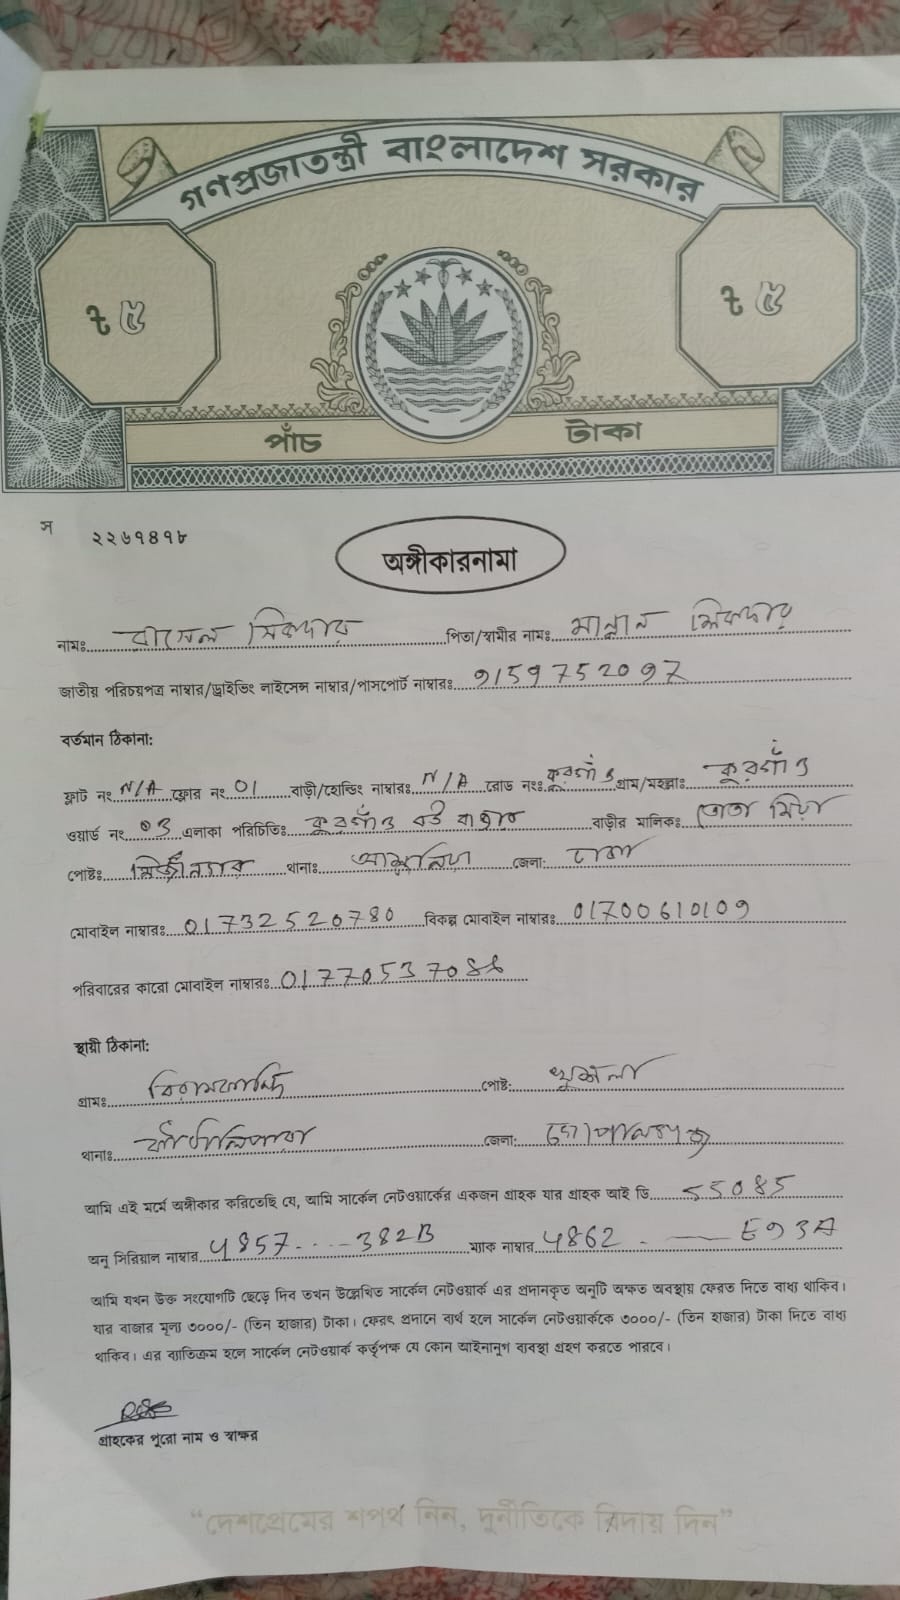 গণপ্রজাতন্ত্রী বাংলাদেশ সরকার
৳ ৫
৳ ৫
পাঁচ টাকা
স ২২৬৭৪১৮
অঙ্গীকারনামা
নামঃ রাসেল সিকদার পিতা/স্বামীর নামঃ মান্নান সিকদার
জাতীয় পরিচয়পত্র নাম্বার/ড্রাইভিং লাইসেন্স নাম্বার/পাসপোর্ট নাম্বারঃ 9159752097
বর্তমান ঠিকানা:
ফ্লাট নং N/A ফ্লোর নং 01 বাড়ী/হোল্ডিং নাম্বারঃ N/A রোড নংঃ কুরগাঁও গ্রাম/মহল্লাঃ কুরগাঁও
ওয়ার্ড নং 03 এলাকা পরিচিতিঃ কুরগাঁও বাজার বাড়ীর মালিকঃ তোতা মিয়া
পোষ্টঃ মির্জানগর থানাঃ আশুলিয়া জেলা: ঢাকা
মোবাইল নাম্বারঃ 01732520780 বিকল্প মোবাইল নাম্বারঃ 01700610109
পরিবারের কারো মোবাইল নাম্বারঃ
স্থায়ী ঠিকানা:
গ্রামঃ পোষ্ট:
থানাঃ কোটালিপাড়া জেলা: গোপালগঞ্জ
আমি এই মর্মে অঙ্গীকার করিতেছি যে, আমি সার্কেল নেটওয়ার্কের একজন গ্রাহক যার গ্রাহক আই ডি 55085
অনু সিরিয়াল নাম্বার 4857....382B ম্যাক নাম্বার 4862 . — E93A
আমি যখন উক্ত সংযোগটি ছেড়ে দিব তখন উল্লেখিত সার্কেল নেটওয়ার্ক এর প্রদানকৃত অনুটি অক্ষত অবস্থায় ফেরত দিতে বাধ্য থাকিব।
যার বাজার মূল্য ৩০০০/- (তিন হাজার) টাকা। ফেরৎ প্রদানে ব্যর্থ হলে সার্কেল নেটওয়ার্ককে ৩০০০/- (তিন হাজার) টাকা দিতে বাধ্য
থাকিব। এর ব্যাতিক্রম হলে সার্কেল নেটওয়ার্ক কর্তৃপক্ষ যে কোন আইনানুগ ব্যবস্থা গ্রহণ করতে পারবে।
গ্রাহকের পুরো নাম ও স্বাক্ষর
“দেশপ্রেমের শপথ নিন, দুর্নীতিকে বিদায় দিন”